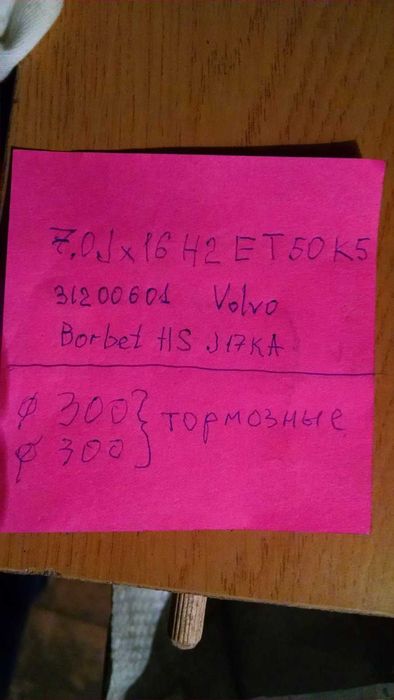 7.0J x 16 H2 ET50 K5
31200601 Volvo
Borbet HS J17KA
ø 300 } тормозные
ø 300